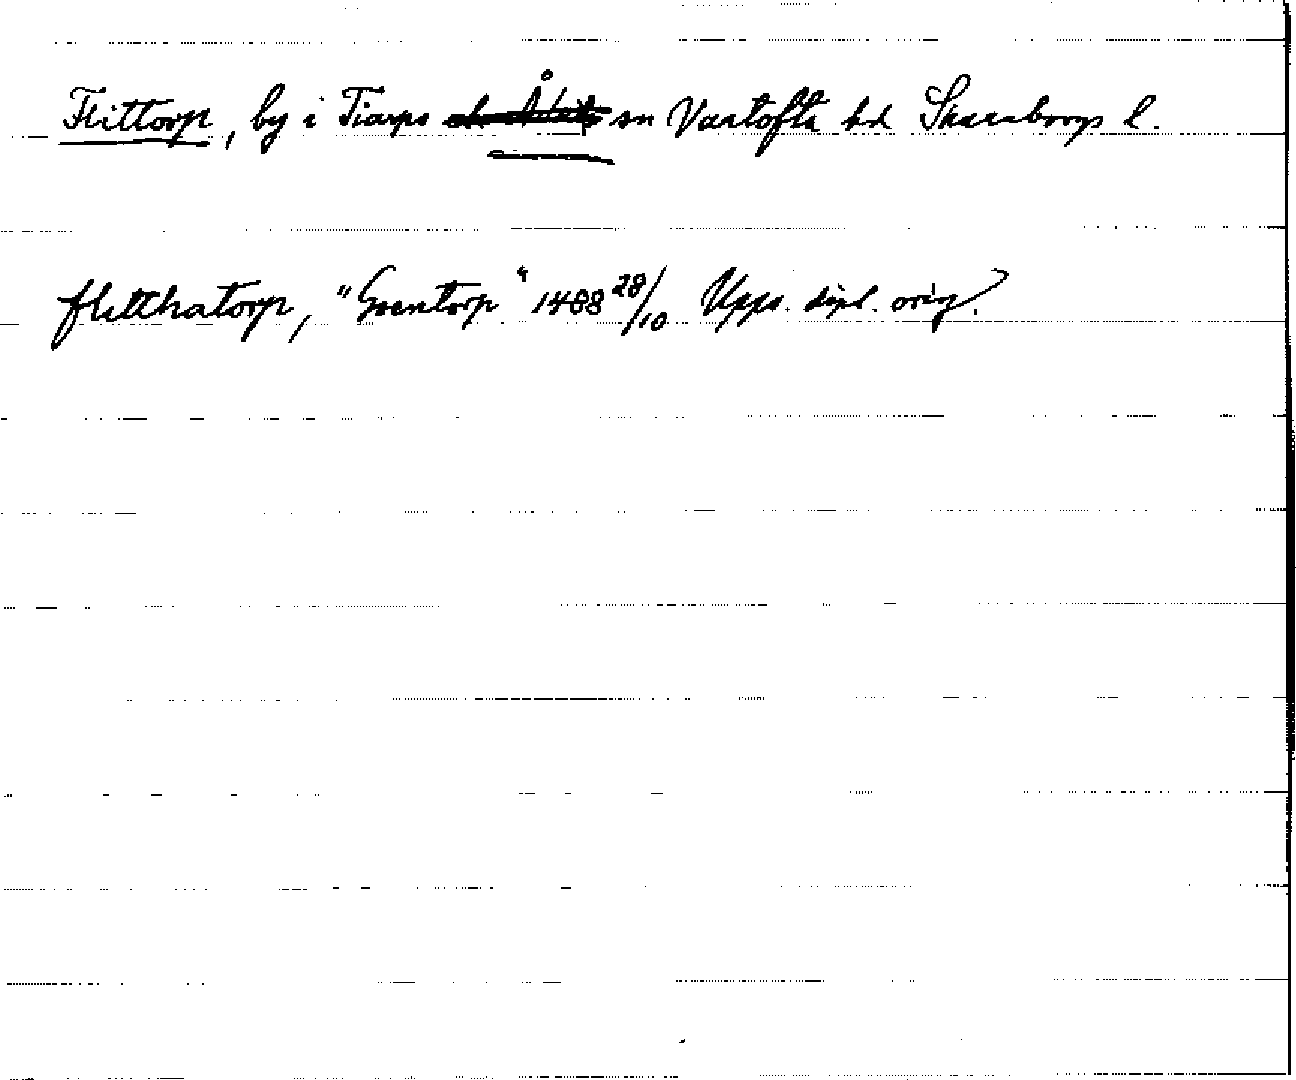 Flittorp, by i Tiarps sn Vartofta hd Skaraborgs l.
fletthatorp, "Groentorp" 1488 28/10 Upps. dipl. orig.